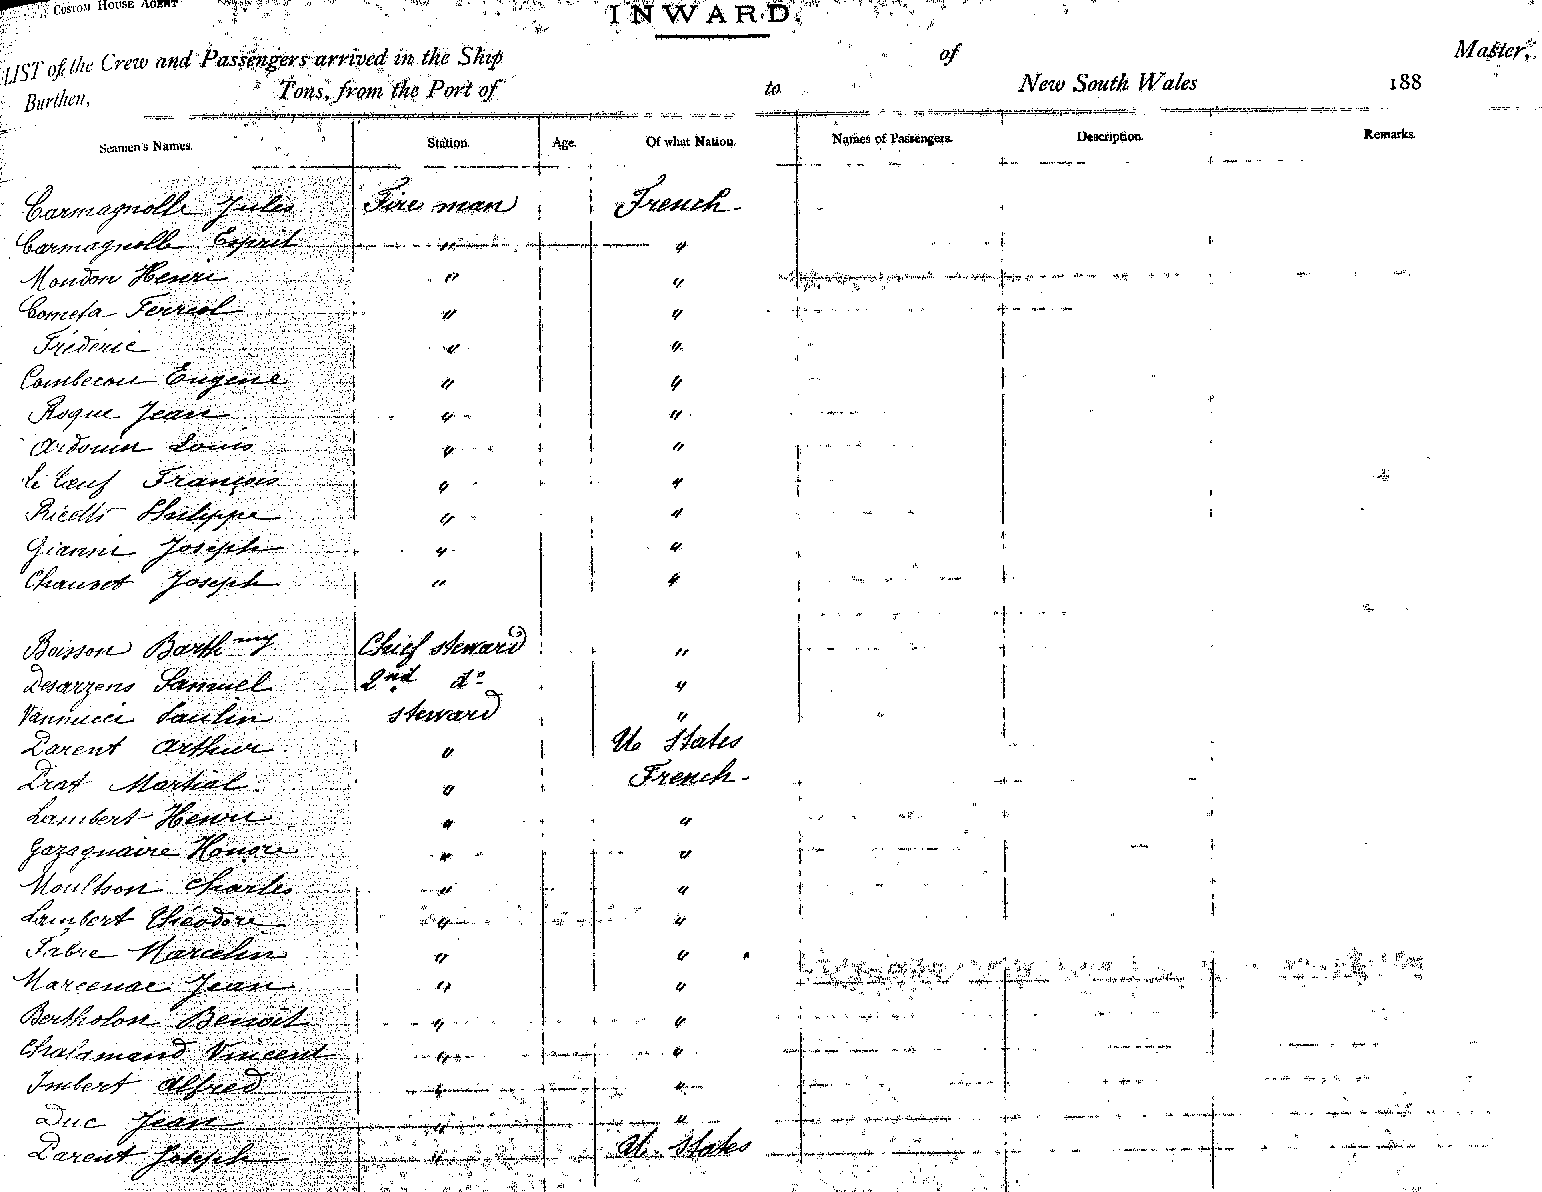 CUSTOM HOUSE AGENT
INWARD.
LIST of the Crew and Passengers arrived in the Ship of Master,
Burthen, Tons, from the Port of to New South Wales 188
Seamen's Names. Station. Age. Of what Nation. Names of Passengers. Description. Remarks.
Carmagnolle Jules Fire man French
Carmagnolle Esprit " "
Moudon Henri " "
Cometa Ferreol " "
Frédéric " "
Combecau Eugene " "
Roque Jean " "
Ardouin Louis " "
Le Bœuf François " "
Ricetti Philippe " "
Gianni Joseph " "
Chauvet Joseph " "
Boisson Barthmy Chief steward "
Desarzens Samuel 2nd do "
Vannucci Paulin steward "
Parent Arthur " U. States
Prat Martial " French
Lambert Henri " "
Gazagnaire Honore " "
Moulhon Charles " "
Lambert Théodore " "
Fabre Marcelin " "
Marcenac Jean " "
Bertholon Benoît " "
Chalamand Vincent " "
Imbert Alfred " "
Duc Jean " "
Parent Joseph " U. States